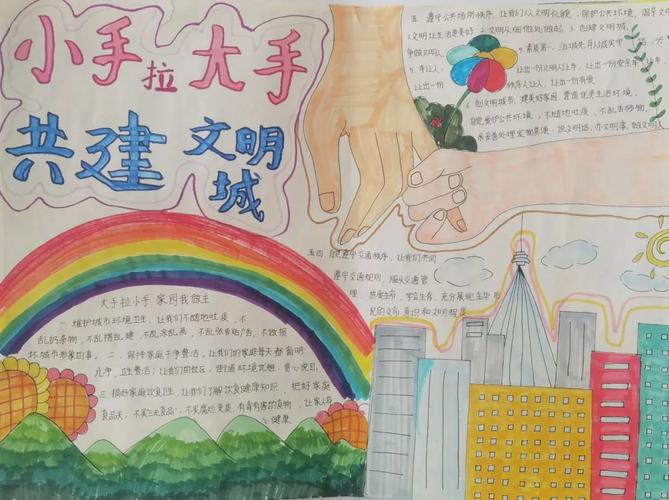 小手拉大手
共建文明城
五 遵守公共场所秩序，让我们从文明礼貌，保护公共环境，倡导文明
1.文明让生活更美好 2.文明从细微处做起 3.创建文明城，
争做文明人 4.素质第一
5.手让人，让出一份文明
让出一份 秩序让人，让出一份有爱
6.创文明城市，建美好家园，营造优美生活环境，
自觉爱护公共环境；不随地吐痰，不乱丢杂物，
说文明话，办文明事，做文明人
四、自觉遵守交通秩序，让我们共同
遵守交通规则，服从交通管
理 热爱生命，学会生命，充分展现
民的文明意识和文明程度
大手拉小手 家园我做主
一、维护城市环境卫生，让我们不随地吐痰，不
乱扔杂物，不乱搭乱建，不乱涂乱画，不乱张贴广告，不做损
坏城市形象的事。二、保持家庭干净整洁，让我们的家庭每天都窗明
几净，卫生整洁；让我们的社区、街道环境优雅，赏心悦目。
三、搞好家庭饮食卫生，让我们了解饮食健康知识，把好家庭
食品关，不买三无食品，不买腐烂变质，有毒有害的食物，让家人身
心健康